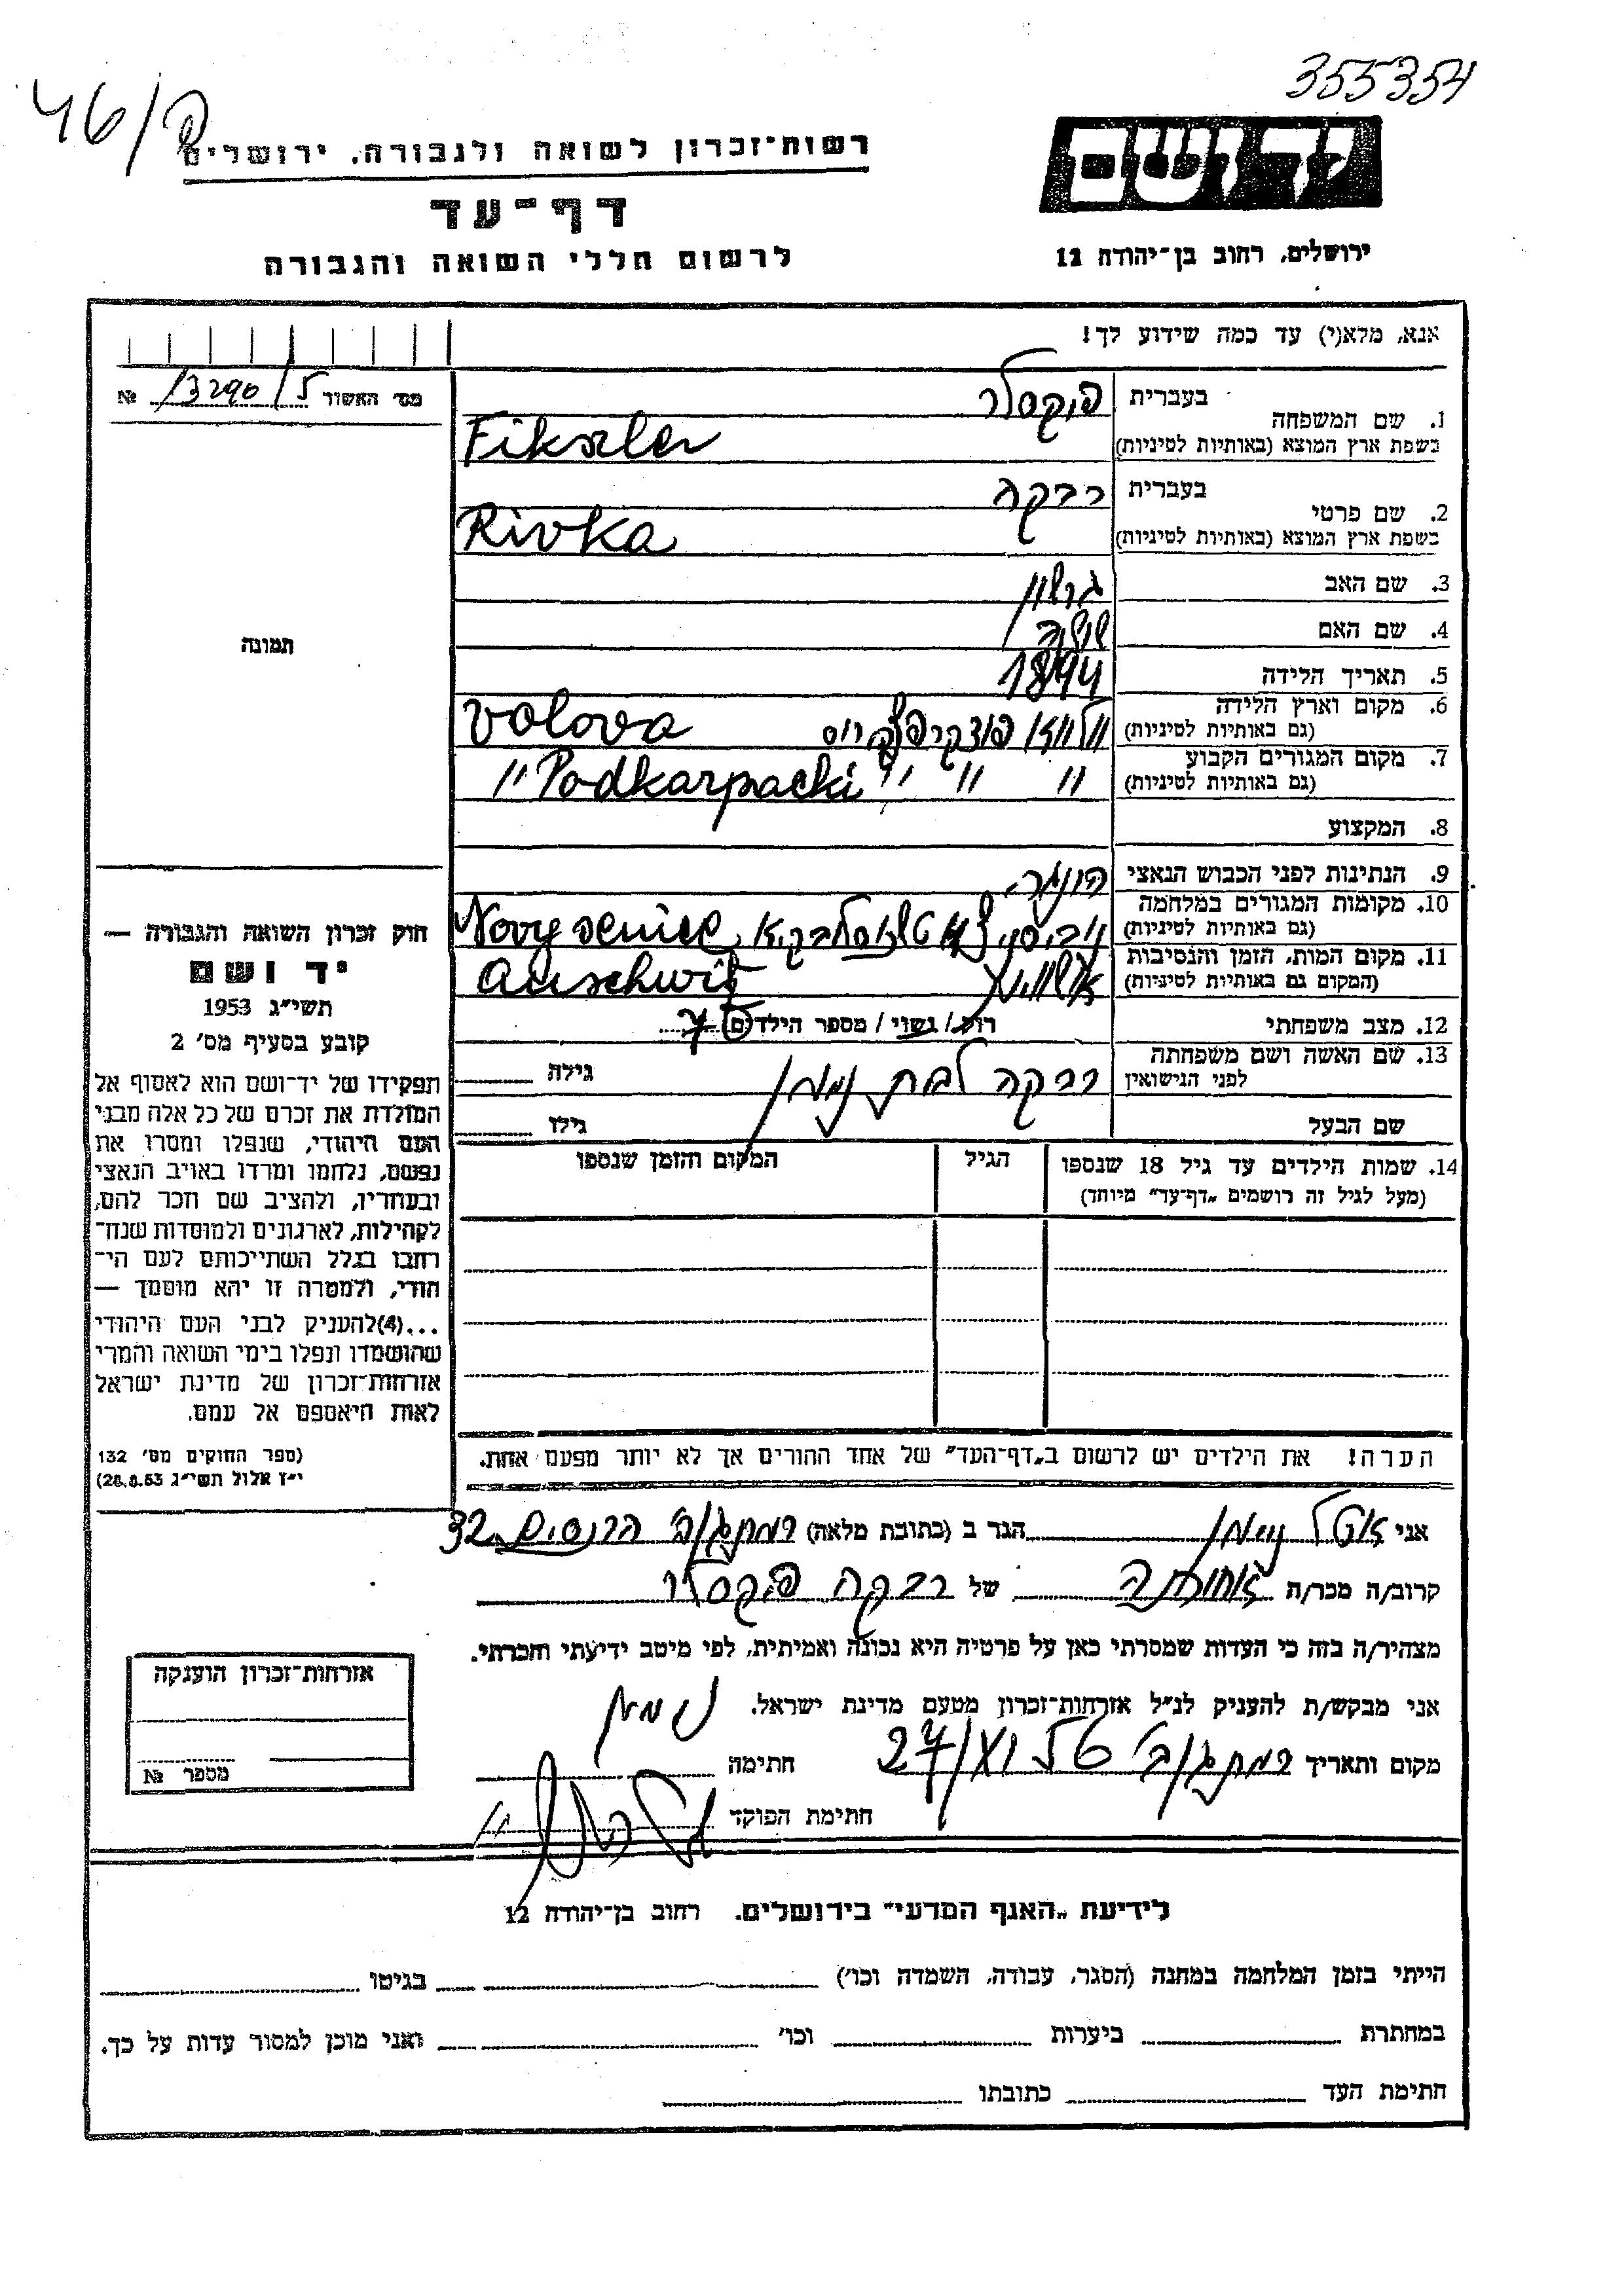 355354
46/פ
יד ושם
ירושלים, רחוב בן־יהודה 12
רשות־זכרון לשואה ולגבורה, ירושלים
דף־עד
לרשום חללי השואה והגבורה
אנא, מלא(י) עד כמה שידוע לך!
מס׳ האשור 13290/5 №
תמונה
1. שם המשפחה בעברית פיקסלר
בשפת ארץ המוצא (באותיות לטיניות) Fikszler
2. שם פרטי בעברית רבקה
בשפת ארץ המוצא (באותיות לטיניות) Rivka
3. שם האב גרשון
4. שם האם
5. תאריך הלידה 1894
6. מקום וארץ הלידה (גם באותיות לטיניות) Volova
7. מקום המגורים הקבוע (גם באותיות לטיניות) " " " Podkarpacki "
8. המקצוע
9. הנתינות לפני הכבוש הנאצי
10. מקומות המגורים במלחמה (גם באותיות לטיניות)
11. מקום המות, הזמן והנסיבות (המקום גם באותיות לטיניות) אושוויץ Auschwitz
12. מצב משפחתי רווק / נשוי / מספר הילדים 7
13. שם האשה ושם משפחתה לפני הנישואין רבקה לבית נוימן גילה
שם הבעל גילו
14. שמות הילדים עד גיל 18 שנספו הגיל המקום והזמן שנספו
(מעל לגיל זה רושמים „דף־עד״ מיוחד)
הערה! את הילדים יש לרשום ב„דף־העד״ של אחד ההורים אך לא יותר מפעם אחת.
חוק זכרון השואה והגבורה —
יד ושם
תשי״ג 1953
קובע בסעיף מס׳ 2
תפקידו של יד־ושם הוא לאסוף אל
המולדת את זכרם של כל אלה מבני
העם היהודי, שנפלו ומסרו את
נפשם, נלחמו ומרדו באויב הנאצי
ובעוזריו, ולהציב שם וזכר להם,
לקהילות, לארגונים ולמוסדות שנח־
רבו בגלל השתייכותם לעם הי־
הודי, ולמטרה זו יהא מוסמך —
...(4)להעניק לבני העם היהודי
שהושמדו ונפלו בימי השואה והמרי
אזרחות־זכרון של מדינת ישראל
לאות היאספם אל עמם.
(ספר החוקים מס׳ 132
י״ז אלול תשי״ג 28.8.53)
אני נוימן הגר ב (כתובת מלאה) רמת גן 32
קרוב/ה מכר/ה אחותה של רבקה פיקסלר
מצהיר/ה בזה כי העדות שמסרתי כאן על פרטיה היא נכונה ואמיתית, לפי מיטב ידיעתי והכרתי.
אני מבקש/ת להעניק לנ״ל אזרחות־זכרון מטעם מדינת ישראל.
מקום ותאריך חתימה נוימן
חתימת הפוקד
אזרחות־זכרון הוענקה
מספר №
לידיעת „האגף המדעי״ בירושלים. רחוב בן־יהודה 12
הייתי בזמן המלחמה במחנה (הסגר, עבודה, השמדה וכו׳) בגיטו
במחתרת ביערות וכו׳ ואני מוכן למסור עדות על כך.
חתימת העד כתובתו